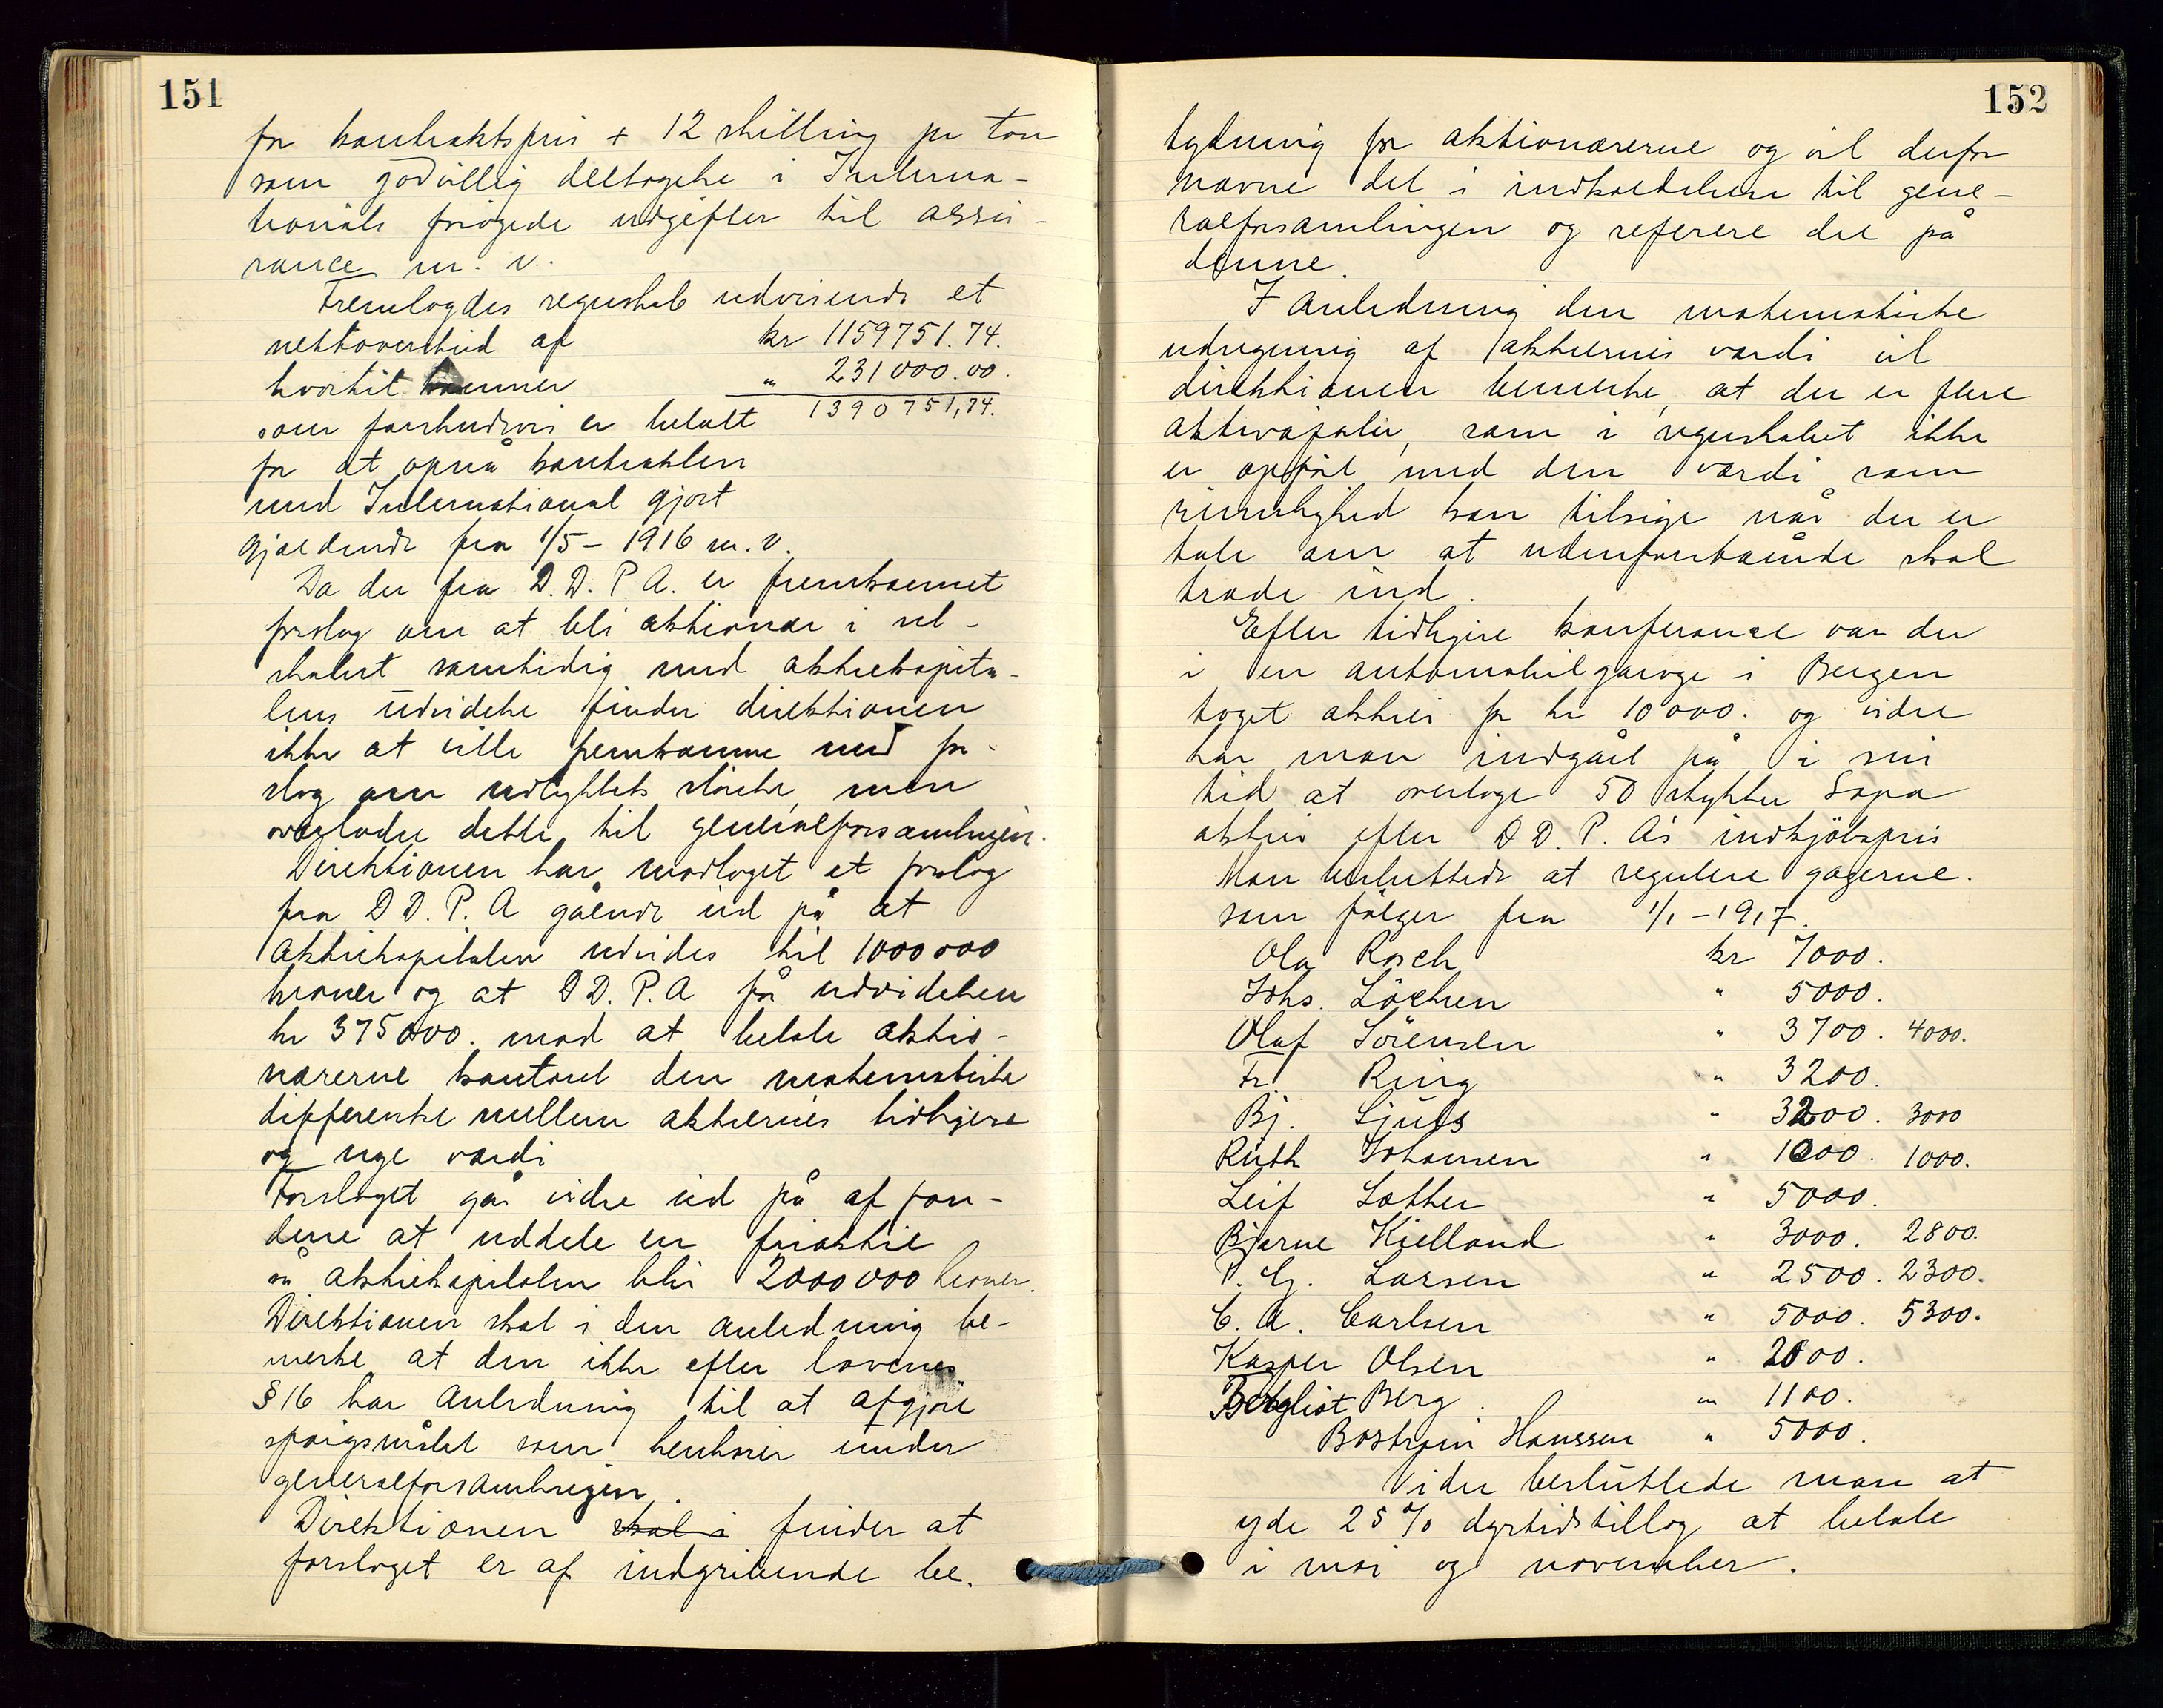 151
for kontraktspris + 12 shilling pr ton
som godvillig deltagelse i Interna-
tionals forögede udgifter til assu-
rance m. v.
Fremlagdes regnskab udvisende et
nettooverskud af kr 1159751.74.
hvortil kommer " 231000.00.
1390751,74.
som forskudsvis er betalt
for at opnå kontrakten
med International gjort
gjældende fra 1/5 - 1916 m. v.
Da der fra D. D. P. A. er fremkommet
forslag om at bli aktionær i sel-
skabet samtidig med aktiekapita-
lens udvidelse finder direktionen
ikke at ville fremkomme med for-
slag om udbyttets större, men
overlader dette til generalforsamlingen.
Direktionen har modtaget et forslag
fra D D. P. A gående ud på at
aktiekapitalen udvides til 1000000
kroner og at D D. P. A får udvidelsen
kr 375000. mod at betale aktio-
nærerne kontant den matematiske
differense mellem aktiernes tidligere
og nye værdi
Forslaget går videre ud på af fon-
dene at uddele en friaktie
så aktiekapitalen blir 2000000 kroner.
Direktionen skal i den anledning be-
merke at den ikke efter lovenes
§ 16 har anledning til at afgjöre
spörgsmålet som henhörer under
generalforsamlingen.
Direktionen skal i finder at
forslaget er af indgribende be-
152
tydning for aktionærerne og vil derfor
nævne det i indkaldelsen til gene-
ralforsamlingen og referere det på
denne.
I anledning den matematiske
udregning af aktiernes værdi vil
direktionen bemerke, at der er flere
aktivaposter, som i regnskabet ikke
er opfört med den værdi som
rimelighed kan tilsige når der er
tale om at udenforstående skal
træde ind.
Efter tidligere konferance var der
i en automobilgarage i Bergen
taget aktier for kr 10000. og videre
har man indgået på i sin
tid at overtage 50 stykker Sapa
aktier efter D D. P. A's indkjöbspris
Man besluttede at regulere gagerne
som fölger fra 1/1 - 1917.
Ola Rosch kr 7000.
Johs. Löchen " 5000.
Olaf Sörensen " 3700. 4000.
Fr. Ring " 3200.
Bj. Sjuls " 3200. 3000
Ruth Johansen " 1000. 1000.
Leif Sother " 5000.
Bjarne Kielland " 3000. 2800.
P. G. Larsen " 2500. 2300.
C. A. Carlsen " 5000. 5300.
Kasper Olsen " 2000.
Bergliot Berg " 1100.
Boström Hanssen " 5000.
Videre besluttede man at
yde 25 % dyrtidstillæg at betale
i mai og november.